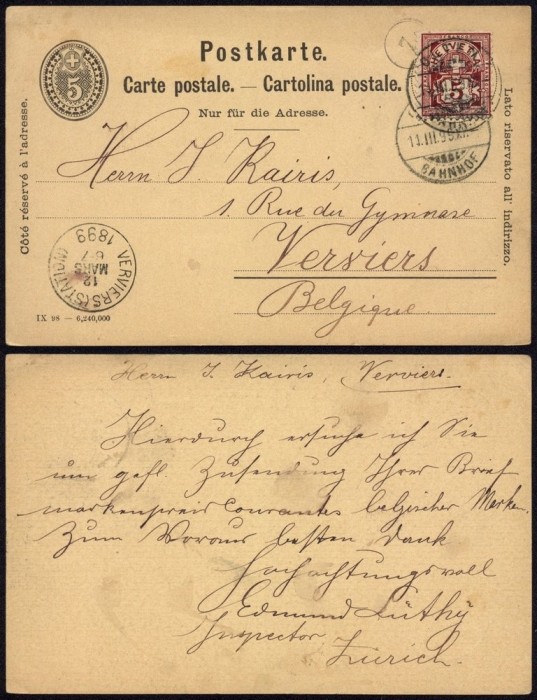 Postkarte.
Carte postale. — Cartolina postale.
Nur für die Adresse.
5
5
Côté réservé à l'adresse.
Lato riservato all' indirizzo.
BAHNHOF
Herrn J. Kairis,
1. Rue du Gymnase
Verviers
Belgique.
VERVIERS (STATION)
12
MARS
6-7
1899
IX 98 — 6,240,000
Herrn J. Kairis, Verviers.
Hierdurch ersuche ich Sie
um gefl. Zusendung Ihres Brief
markenpreis Courantes belgischer Marken.
Zum Voraus besten Dank
Hochachtungsvoll
Edmund Lüthy
Inspector
Zürich.